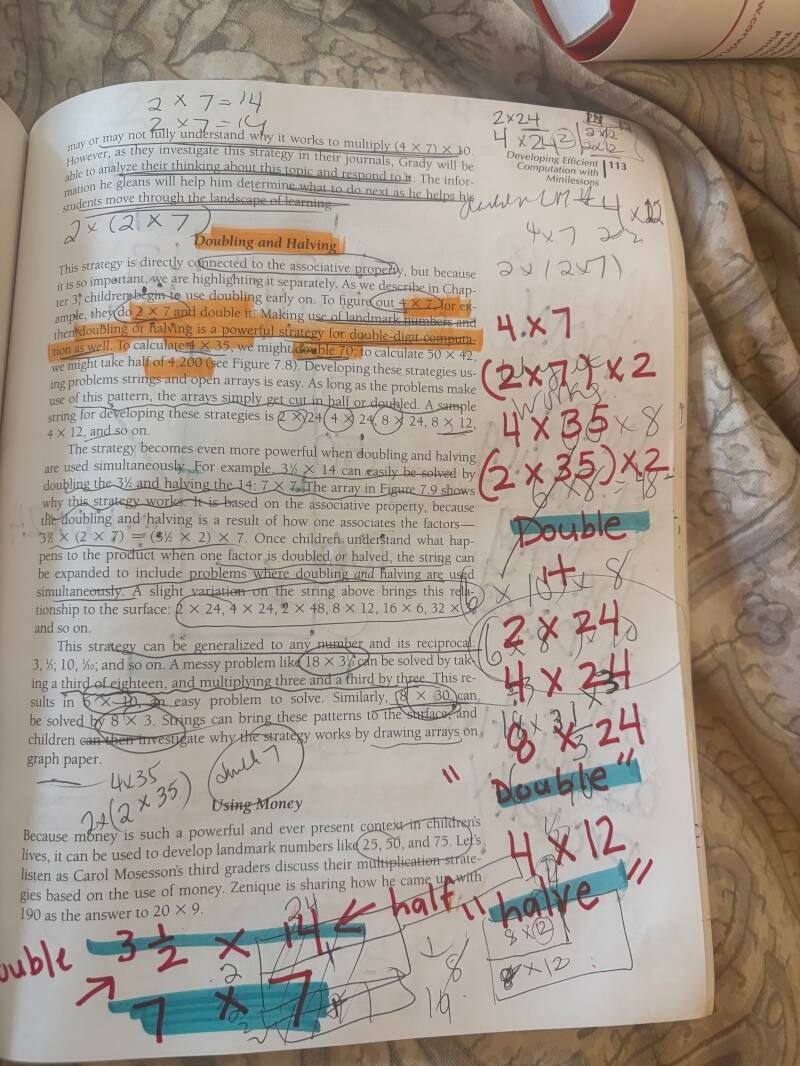 2 × 7 = 14
2 × 7 = 14
2 × 24
4 × 24 2
may or may not fully understand why it works to multiply (4 × 7) × 10.
However, as they investigate this strategy in their journals, Grady will be
able to analyze their thinking about this topic and respond to it. The infor-
mation he gleans will help him determine what to do next as he helps his
students move through the landscape of learning.
Developing Efficient
Computation with
Minilessons
113
2 × (2 × 7)
4 × 12
4 × 7
2 × (2 × 7)
Doubling and Halving
This strategy is directly connected to the associative property, but because
it is so important, we are highlighting it separately. As we describe in Chap-
ter 3, children begin to use doubling early on. To figure out 4 × 7, for ex-
ample, they do 2 × 7 and double it. Making use of landmark numbers and
then doubling or halving is a powerful strategy for double-digit computa-
tion as well. To calculate 4 × 35, we might double 70; to calculate 50 × 42,
we might take half of 4,200 (see Figure 7.8). Developing these strategies us-
ing problems strings and open arrays is easy. As long as the problems make
use of this pattern, the arrays simply get cut in half or doubled. A sample
string for developing these strategies is 2 × 24, 4 × 24, 8 × 24, 8 × 12,
4 × 12, and so on.
The strategy becomes even more powerful when doubling and halving
are used simultaneously. For example, 3½ × 14 can easily be solved by
doubling the 3½ and halving the 14: 7 × 7. The array in Figure 7.9 shows
why this strategy works. It is based on the associative property, because
the doubling and halving is a result of how one associates the factors—
3½ × (2 × 7) = (3½ × 2) × 7. Once children understand what hap-
pens to the product when one factor is doubled or halved, the string can
be expanded to include problems where doubling and halving are used
simultaneously. A slight variation on the string above brings this rela-
tionship to the surface: 2 × 24, 4 × 24, 2 × 48, 8 × 12, 16 × 6, 32 ×
and so on.
This strategy can be generalized to any number and its reciprocal:
3, ⅓; 10, ⅒; and so on. A messy problem like 18 × 3⅓ can be solved by tak-
ing a third of eighteen, and multiplying three and a third by three. This re-
sults in 6 × 10, an easy problem to solve. Similarly, 8 × 30 can
be solved by 8 × 3. Strings can bring these patterns to the surface, and
children can then investigate why the strategy works by drawing arrays on
graph paper.
4 × 7
(2 × 7) × 2
4 × 35
(2 × 35) × 2
Double
it
2 × 24
4 × 24
8 × 24
"Double"
4 × 12
"halve"
8 × 12
8 × 12
4 × 35
2 × (2 × 35)
Using Money
Because money is such a powerful and ever present context in children's
lives, it can be used to develop landmark numbers like 25, 50, and 75. Let's
listen as Carol Mosesson's third graders discuss their multiplication strate-
gies based on the use of money. Zenique is sharing how he came up with
190 as the answer to 20 × 9.
24
ouble 3 ½ × 14 half
7 × 7